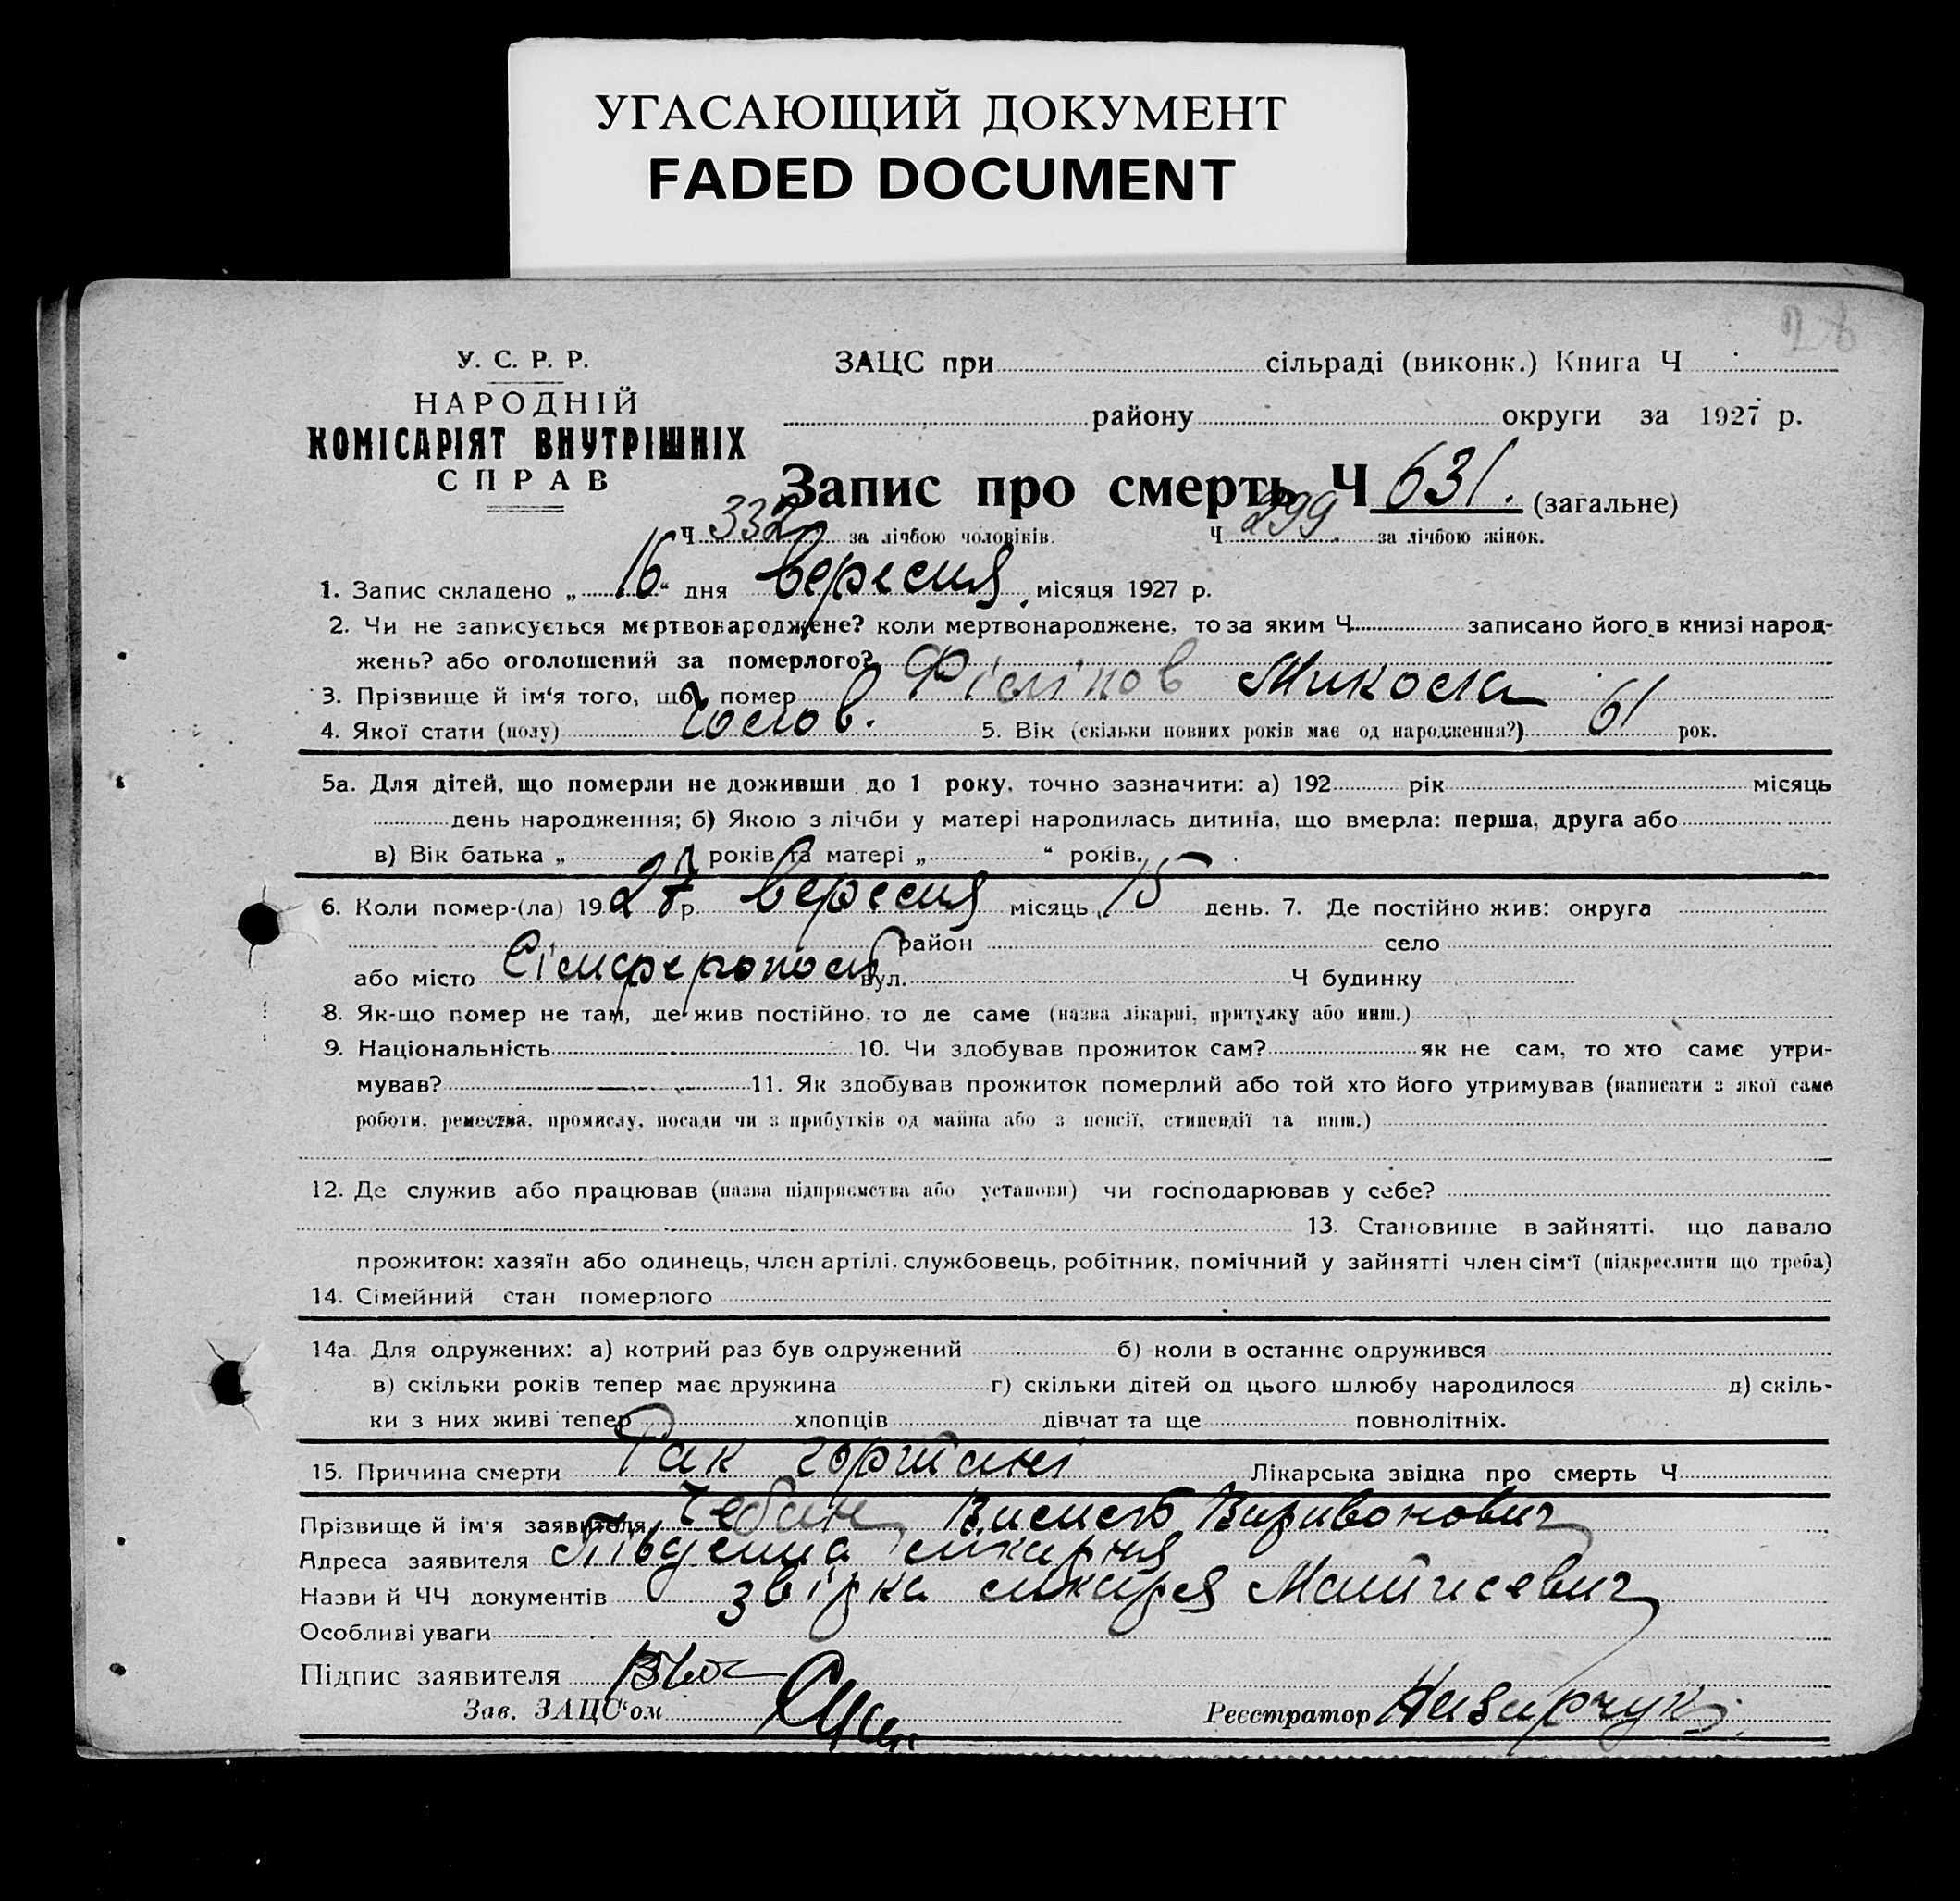 УГАСАЮЩИЙ ДОКУМЕНТ
FADED DOCUMENT
28
У. С. Р. Р.
НАРОДНІЙ
КОМІСАРІЯТ ВНУТРІШНІХ
СПРАВ
ЗАЦС при сільраді (виконк.) Книга Ч
району округи за 1927 р.
Запис про смерть Ч 631. (загальне)
Ч 332 за лічбою чоловіків. Ч 299 за лічбою жінок.
1. Запис складено „16“ дня вересня місяця 1927 р.
2. Чи не записується мертвонароджене? коли мертвонароджене, то за яким Ч записано його в книзі народ-
жень? або оголошений за померлого?
3. Прізвище й ім‘я того, що помер Філіпов Микола
4. Якої стати (полу) чолов. 5. Вік (скільки повних років має од народження?) 61 рок.
5а. Для дітей, що померли не доживши до 1 року, точно зазначити: а) 192 рік місяць
день народження; б) Якою з лічби у матері народилась дитина, що вмерла: перша, друга або
в) Вік батька „ років та матері „ “ років.
6. Коли помер-(ла) 1927 р. вересня місяць 15 день. 7. Де постійно жив: округа
район село
або місто Сімферополь вул. Ч будинку
8. Як-що помер не там, де жив постійно, то де саме (назва лікарні, притулку або инш.)
9. Національність 10. Чи здобував прожиток сам? як не сам, то хто саме утри-
мував? 11. Як здобував прожиток померлий або той хто його утримував (написати з якої саме
роботи, ремества, промислу, посади чи з прибутків од майна або з пенсії, стипендії та инш.)
12. Де служив або працював (назва підприємства або установи) чи господарював у себе?
13. Становище в зайнятті, що давало
прожиток: хазяїн або одинець, член артілі, службовець, робітник, помічний у зайнятті член сім‘ї (підкреслити що треба)
14. Сімейний стан померлого
14а. Для одружених: а) котрий раз був одружений б) коли в останнє одружився
в) скільки років тепер має дружина г) скільки дітей од цього шлюбу народилося д) скіль-
ки з них живі тепер хлопців дівчат та ще повнолітніх.
15. Причина смерти Рак гортані Лікарська звідка про смерть Ч
Прізвище й ім‘я заявителя Чебан
Адреса заявителя Південна лікарня
Назви й ЧЧ документів звідка лікаря Матусевич
Особливі уваги
Підпис заявителя
Зав. ЗАЦС‘ом Реєстратор Назарчук